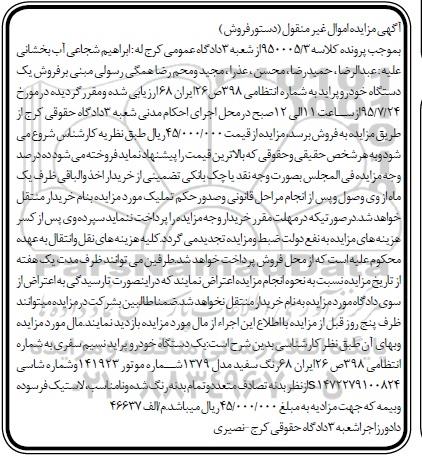 آگهی مزایده اموال غیر منقول (دستور فروش)
بموجب پرونده کلاسه ۹۵۰۰۰۵/۳از شعبه ۳دادگاه عمومی کرج له : ابراهیم شجاعی آب بخشانی
علیه: عبدالرضا ، حمیدرضا، محسن ، عذرا ، مجید ومحم رضا همگی رسولی مبنی بر فروش یک
دستگاه خودرو پراید به شماره انتظامی ۳۹۸ص۲۶ ایران ۶۸ارزیابی شده ومقرر گردیده در مورخ
۹۵/۷/۲۴از ساعت ۱۱الی ۱۲صبح در محل اجرای احکام مدنی شعبه ۳دادگاه حقوقی کرج از
طریق مزایده به فروش برسد.مزایده از قیمت ۴۵/۰۰۰/۰۰۰ریال طبق نظریه کارشناس شروع می
شودوبه هر شخص حقیقی وحقوقی که بالاترین قیمت را پیشنهاد نماید فروخته می شود.ده درصد
وجه مزایده فی المجلس بصورت وجه نقد یا چک بانکی تضمینی از خریدار اخذ والباقی ظرف یک
ماه از وی وصول وپس از انجام مراحل قانونی وصدور حکم تملیک مورد مزایده بنام خریدار منتقل
خواهد شد.در صورتیکه در مهلت مقرر خریدار وجه مزایده را پرداخت ننماید سپرده وی پس از کسر
هزینه های مزایده به نفع دولت ضبط ومزایده تجدید می گردد.کلیه هزینه های نقل وانتقال به عهده
محکوم علیه است که از محل فروش پرداخت خواهد شد.طرفین می توانند ظرف مدت یک هفته
از تاریخ مزایده نسبت به نحوه انجام مزایده اعتراض نمایند که در اینصورت تا رسیدگی به اعتراض از
سوی دادگاه مورد مزایده به نام خریدار منتقل نخواهد شد.ضمنا طالبین بشرکت در مزایده میتوانند
ظرف پنج روز قبل از مزایده با اطلاع این اجراء از مال مورد مزایده بازدید نمایند.مال مورد مزایده
وبهای آن طبق نظر کارشناسی بدین شرح است:یک دستگاه خودرو پراید نسیم سفری به شماره
انتظامی ۳۹۸ص۲۶ ایران ۶۸رنگ سفید مدل ۱۳۷۹شماره موتور ۱۴۱۹۲۳وشماره شاسی
S۱۴۷۲۲۷۹۱۰۰۸۲۴از نظر بدنه تصادف متعدد وتمام بدنه رنگ شده ونامناسب،لاستیک فرسوده
وبیمه که جهت مزایده به مبلغ ۴۵/۰۰۰/۰۰۰ریال میباشد.م/الف ۴۶۶۳۷
دادورز اجرا شعبه ۳دادگاه حقوقی کرج – نصیری